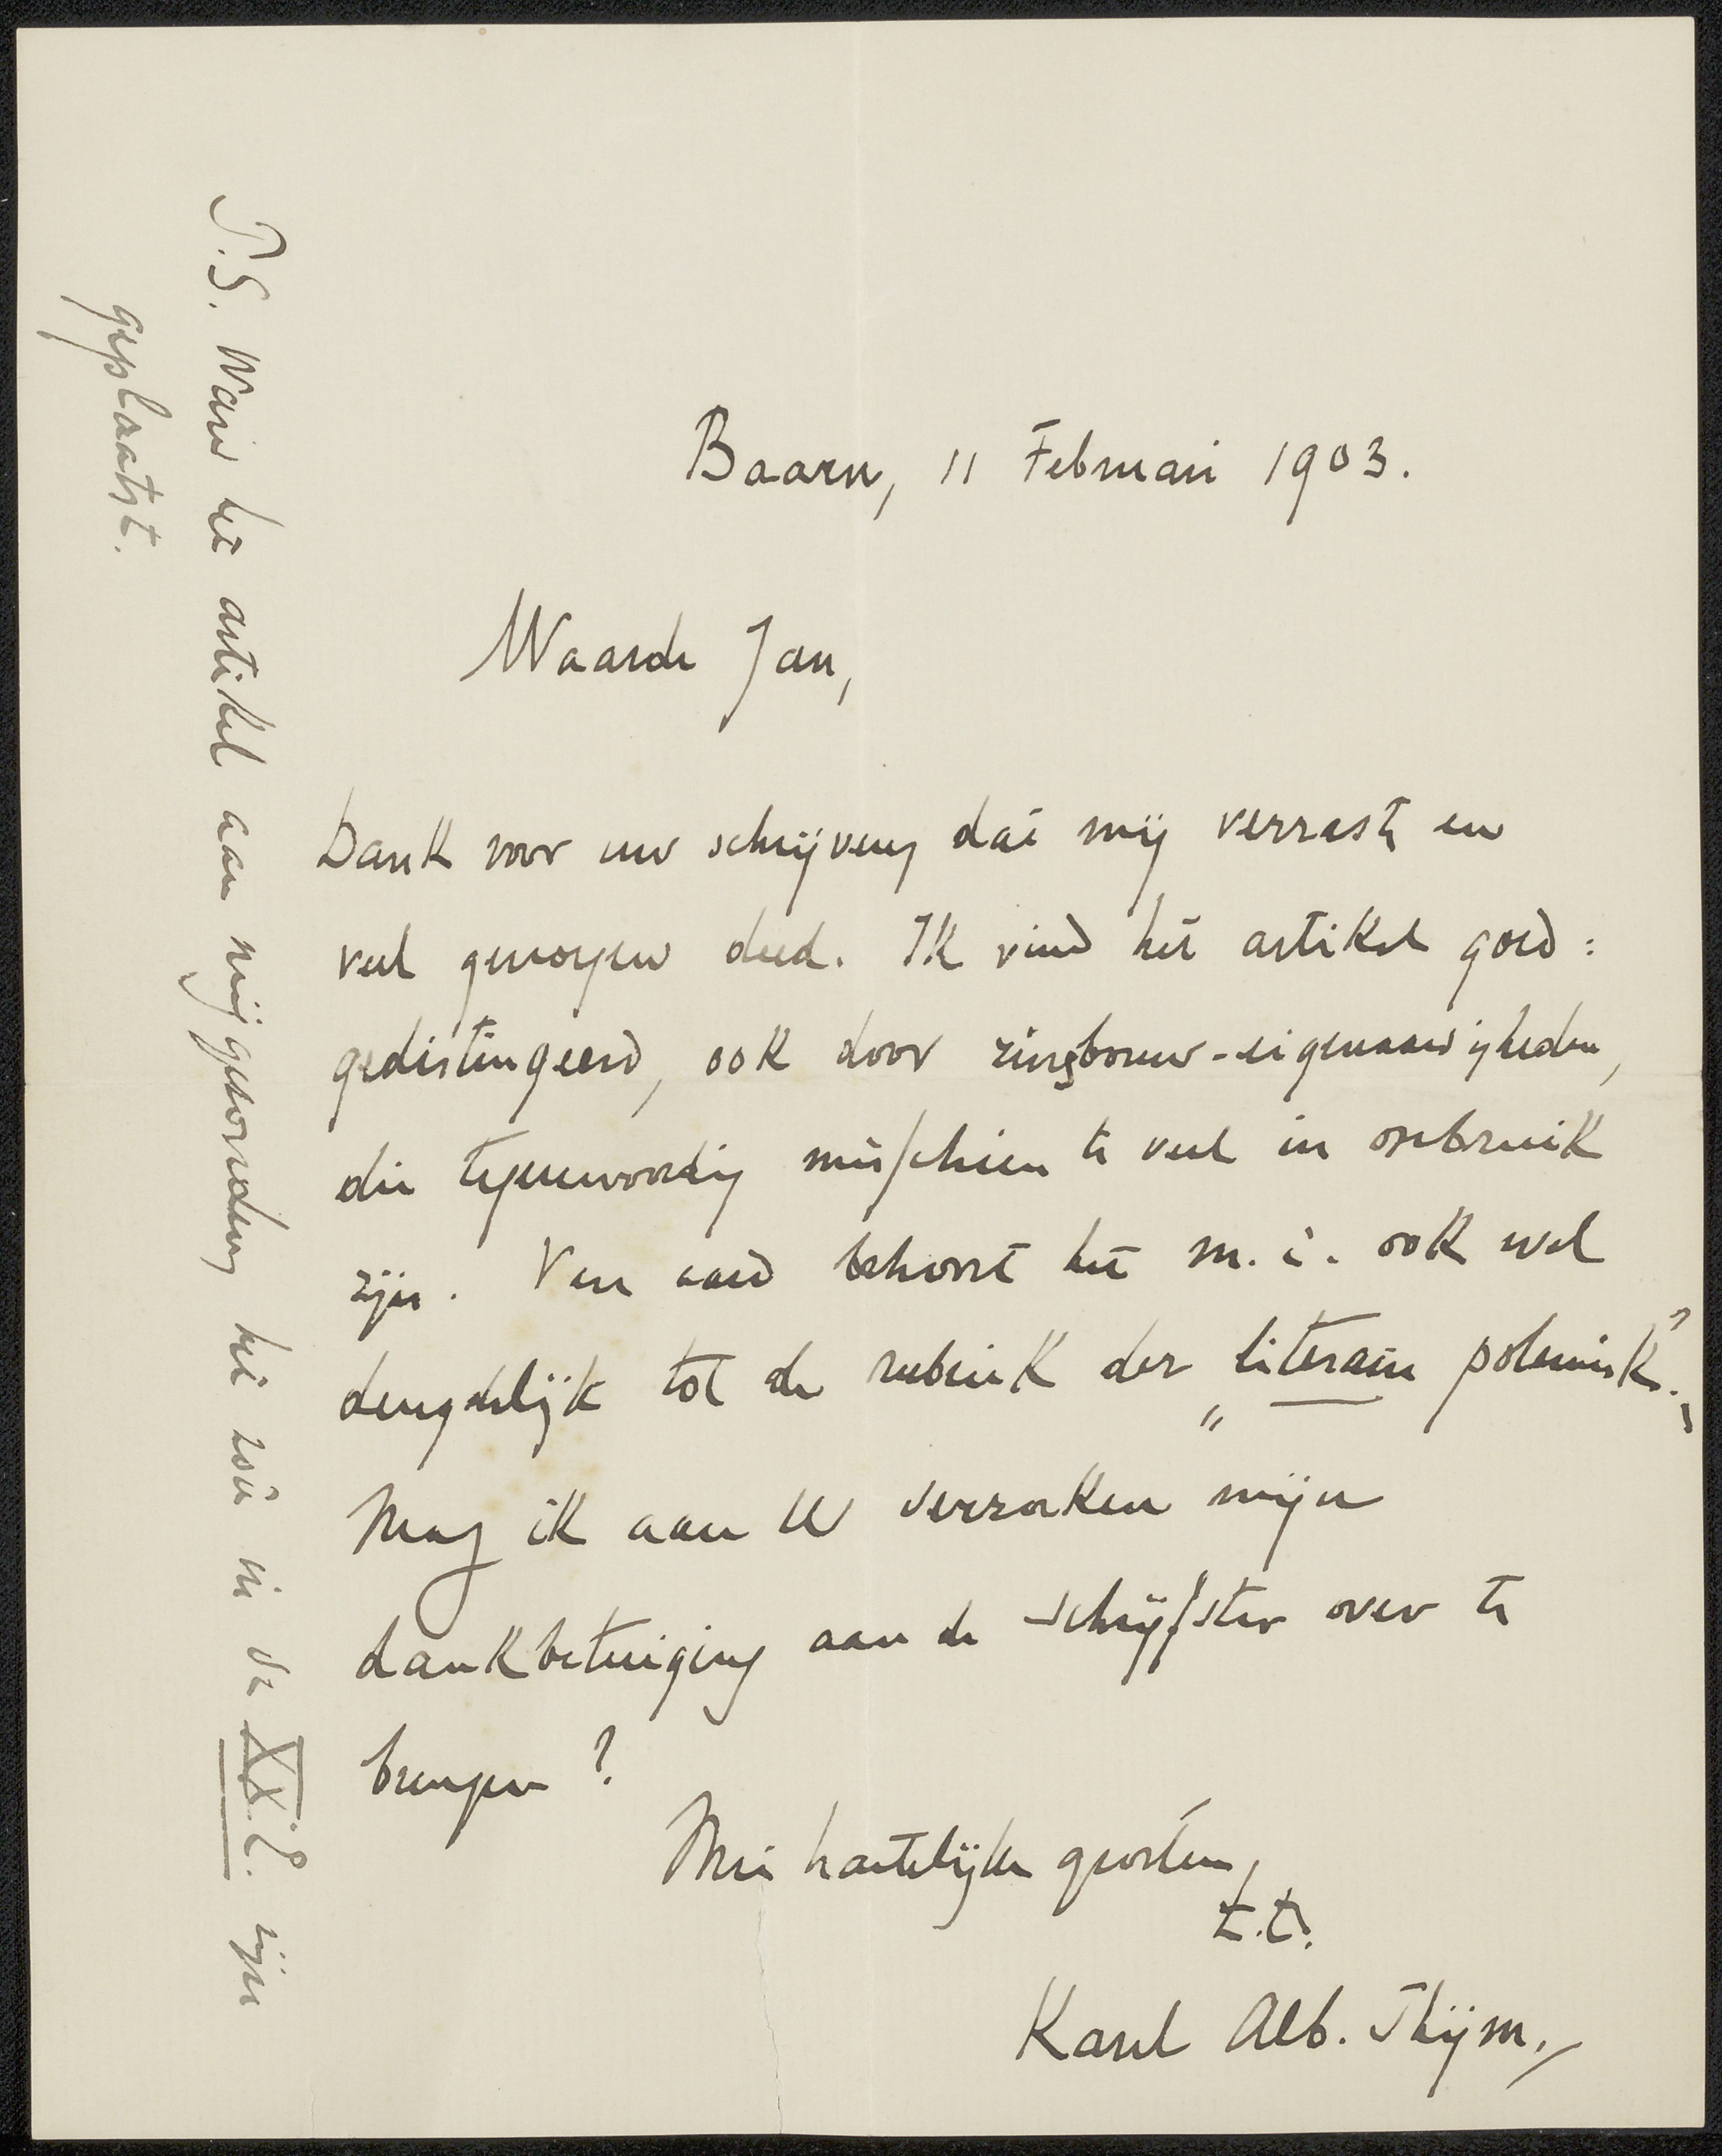 Baarn, 11 Februari 1903.
Waarde Jan,
Dank voor uw schrijven, dat mij verraste en
veel genoegen deed. Ik vind het artikel goed:
gedistingeerd, ook door zinsbouw-eigenaardigheden,
die tegenwoordig misschien te veel in onbruik
zijn. Van aard behoort het m.i. ook wel
deugdelijk tot de rubriek der „literaire polemiek".
Mag ik aan U verzoeken mijn
dankbetuiging aan de schrijfster over te
brengen?
Met hartelijke groeten,
t.t.
Karel Alb. Thijm.
P.S. Ware het artikel aan mij gezonden, het zoû in de XXe E. zijn
geplaatst.